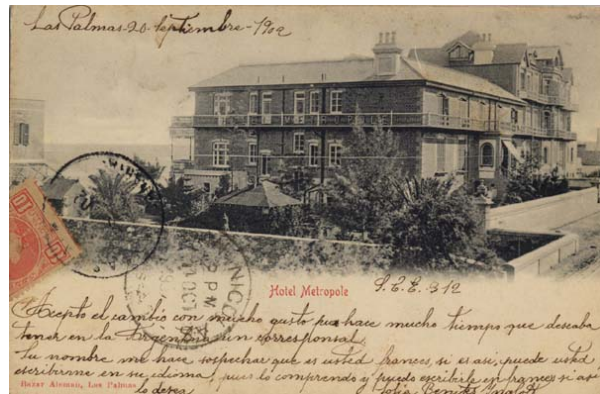 Las Palmas-20-Septiembre-1902
10
10
2 PM
OCT
Hotel Metropole
S.C.E. 312
Accepto el cambio con mucho gusto pues hace mucho tiempo que deseaba
tener en la Argentina un corresponsal,
Su nombre me hace sospechar que es usted frances, si es asi, puede usted
escribirme en su idioma, pues lo comprendo y puedo escribirle en frances si asi
lo desea
Bazar Aleman, Las Palmas
Sofia Benitez Inglott